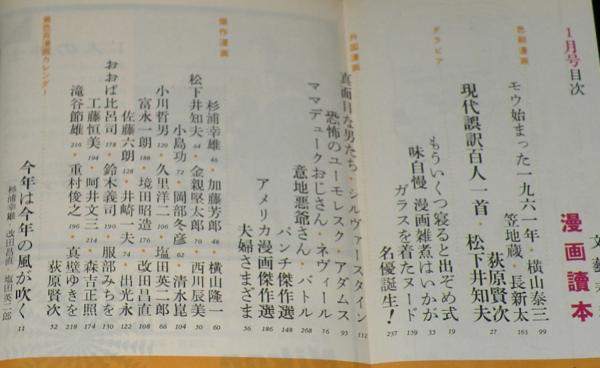 文藝春秋
漫画讀本
1月号目次
色刷漫画
モウ始まった一九六一年・横山泰三 99
笠地蔵・長新太 163
荻原賢次 27
現代誤訳百人一首・松下井知夫
グラビア
もういくつ寝ると出ぞめ式 19
味自慢 漫画雑煮はいかが 33
ガラスを着たヌード 159
名優誕生! 237
外国漫画
真面目な男たち・シルヴァースタイン 112
恐怖のユーモレスク・アダムス 93
ママデュークおじさん・ネヴィール 76
意地悪爺さん・バトル 268
パンチ傑作選 148
アメリカ漫画傑作選 186
夫婦さまざま 56
傑作漫画
杉浦幸雄 46・加藤芳郎 48・横山隆一 60
松下井知夫 64・金親堅太郎 70・西川辰美 50
小島功 72・岡部冬彦 62・清水崑 104
小川哲男 120・久里洋二 106・塩田英二郎 66
富永一朗 188・境田昭造 176・改田昌直 108
佐藤六朗 128・井崎一夫 74・出光永 122
おおば比呂司 178・鈴木義司 190・服部みちを 130
工藤恒美 194・呵井文三 214・森吉正照 174
滝谷節雄 216・重村俊之 196・真壁ゆきを 218
黄色頁漫画カレンダー
荻原賢次 52
今年は今年の風が吹く 11
杉浦幸雄・改田昌直・塩田英二郎